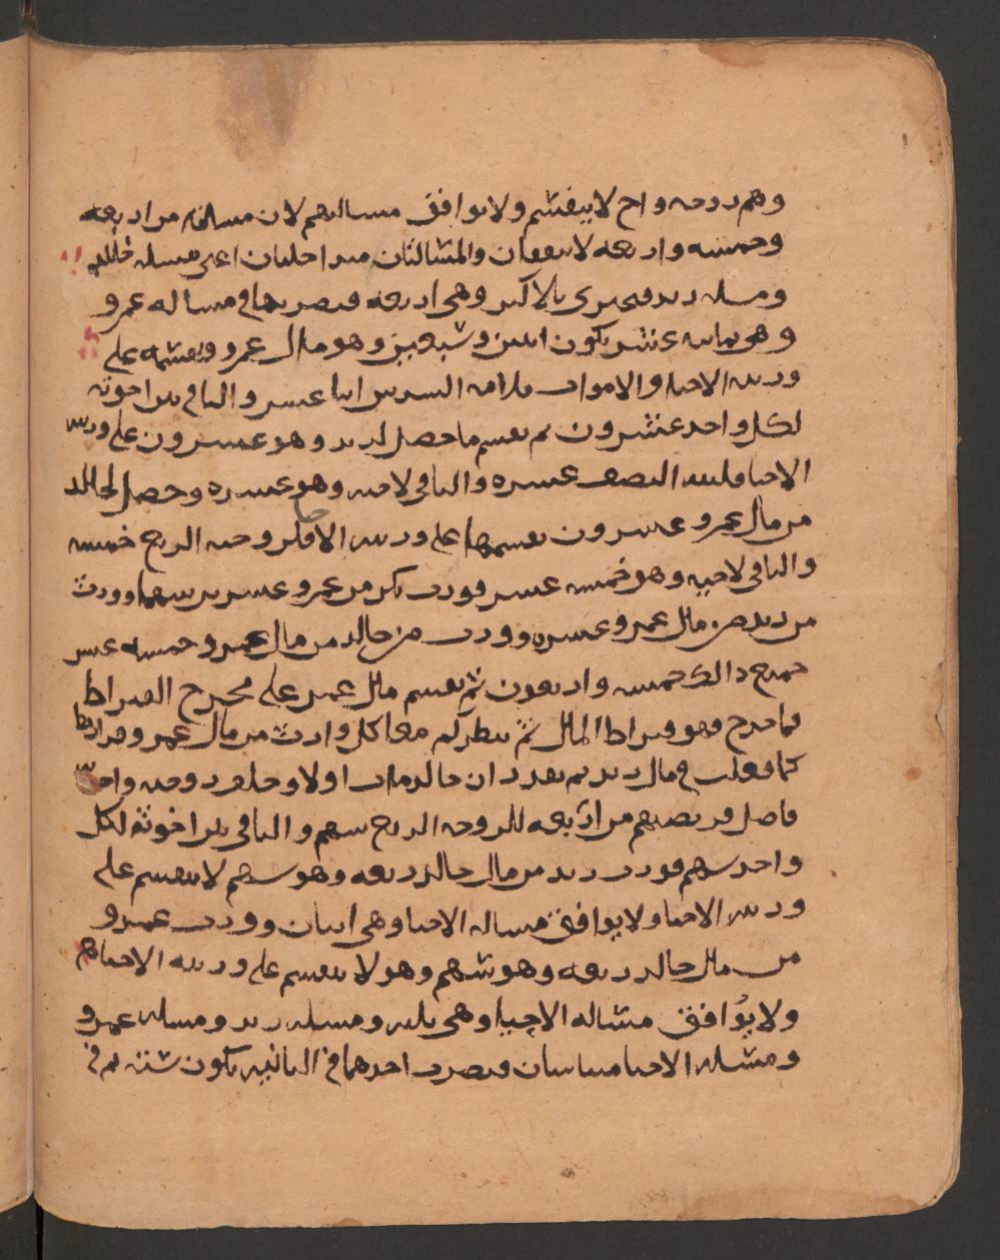 وهم زوجه واخ لا ينقسم ولا يوافق مسالتهم لان مسالته من اربعه
وخمسه واربعه لا يتفقان والمسالتان متداخلتان اعني مسله خالد
ومسله زيد فتجتزي بالاكبر وهي اربعه فتضربها في مساله عمرو
وهي ثمانيه عشر يكون اثنين وسبعين وهو مال عمرو وتقسمه على
ورثته الاحيا والاموات فلامه السدس اثنا عشر والباقي بين اخوته
لكل واحد عشرون ثم تقسم ما حصل لزيد وهو عشرون على ورثته
الاحيا فلبنته النصف عشره والباقي لاخيه وهو عشره وحصل لخالد
من مال عمرو عشرون تقسمها على ورثته الاحيا فلزوجته الربع خمسه
والباقي لاخيه وهو خمسه عشر فورث بكر من عمرو عشرين سهما وورث
من زيد من مال عمرو عشره وورث من خالد من مال عمرو خمسه عشر
جميع ذالك خمسه واربعون ثم تقسم مال عمرو على مخرج القيراط
فما خرج فهو قيراط المال ثم تنظر كم مع كل وارث من مال عمرو قراريط
كما فعلت في مال زيد ثم تقدر ان خالد مات اولا وخلف زوجه واخوته
فاصل فريضتهم من اربعه للزوجه الربع سهم والباقي بين اخوته لكل
واحد سهم فورث زيد من مال خالد ربعه وهو سهم لا ينقسم على
ورثته الاحيا ولا يوافق مساله الاحيا وهي اثنان وورث عمرو
من مال خالد ربعه وهو سهم وهو لا ينقسم على ورثته الاحيا
ولا يوافق مساله الاحيا وهي ثلثه ومسله زيد ومسله عمرو
ومسله الاحيا متباينان فتضرب احدهما في الثانيه يكون سته ثم في